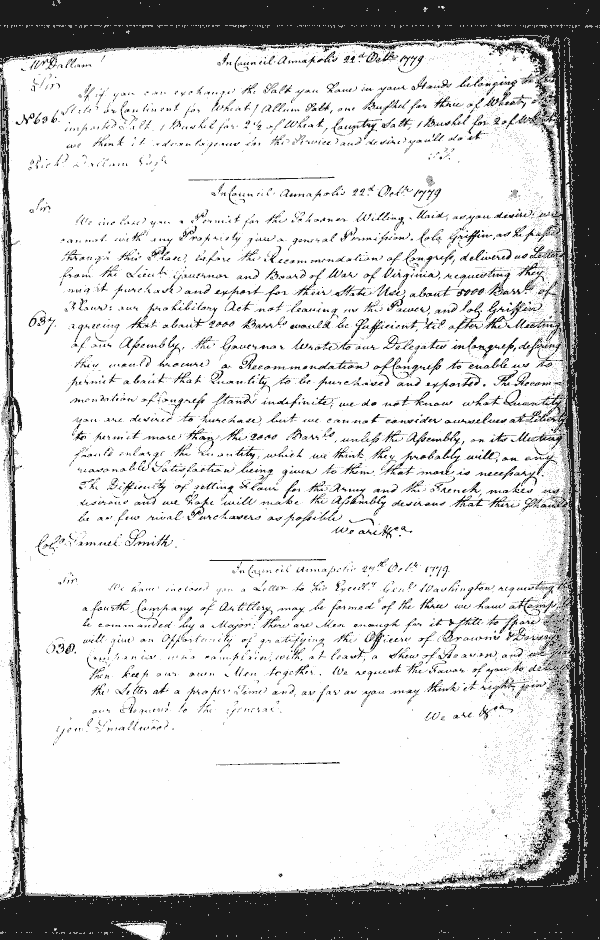 Mr Dallam
In Council Annapolis 22d Octr 1779
Sir
If you can exchange the Salt you have in your Hands belonging to
No 636. State or Continent for Wheat, 1 Allum Salt, one Bushel for three of Wheat,
imported Salt, 1 Bushel for 2 1/2 of Wheat, Country Salt, 1 Bushel for 2 of Wheat
we think it advantageous for the Service and desire you'll do it
Richd Dallam Esqr
In Council Annapolis 22d Octr 1779
Sir
We inclose you a Permit for the Schooner Willing Maid, as you desire; we
cannot with any Propriety give a general Permission. Colo Griffin, as he passed
through this Place, before the Recommendation of Congress, delivered us Letters
from the Lieut Governor and Board of War of Virginia, requesting they
might purchase and export for their State Use, about 5000 Barrls of
Flour: our prohibitory Act not leaving us the Power, and Colo Griffin
637. agreeing that about 2000 Barrls would be sufficient, til after the Meeting
of our Assembly, the Governor wrote to our Delegates in Congress, desiring
they would procure a Recommendation of Congress to enable us to
permit about that Quantity, to be purchased and exported. The Recom-
mendation of Congress stands indefinite, we do not know what Quantity
you are desired to purchase, but we cannot consider ourselves at Liberty
to permit more than the 2000 Barrls, unless the Assembly, on its Meeting
should enlarge the Quantity, which we think they probably will, on any
reasonable Satisfaction being given to them, that more is necessary.
The Difficulty of getting Flour for the Army and the French, makes us
desirous and we hope will make the Assembly desirous that there should
be as few rival Purchasers as possible
We are &ca
Colo Samuel Smith.
In Council Annapolis 27th Octr 1779.
Sir
We have inclosed you a Letter to his Excelly Genl Washington, requesting
a fourth Company of Artillery, may be formed of the three we have at Camp
be commanded by a Major; there are Men enough for it & still to spare
will give an Opportunity of gratifying the Officers of Browns & Dorseys
638. Companies who complain, with, at least, a Shew of Reason, and
then keep our own Men, together. We request the Favor of you to
the Letter at a proper Time and, as far as you may think it right, join
our Request to the General.
We are &ca
Genl Smallwood.